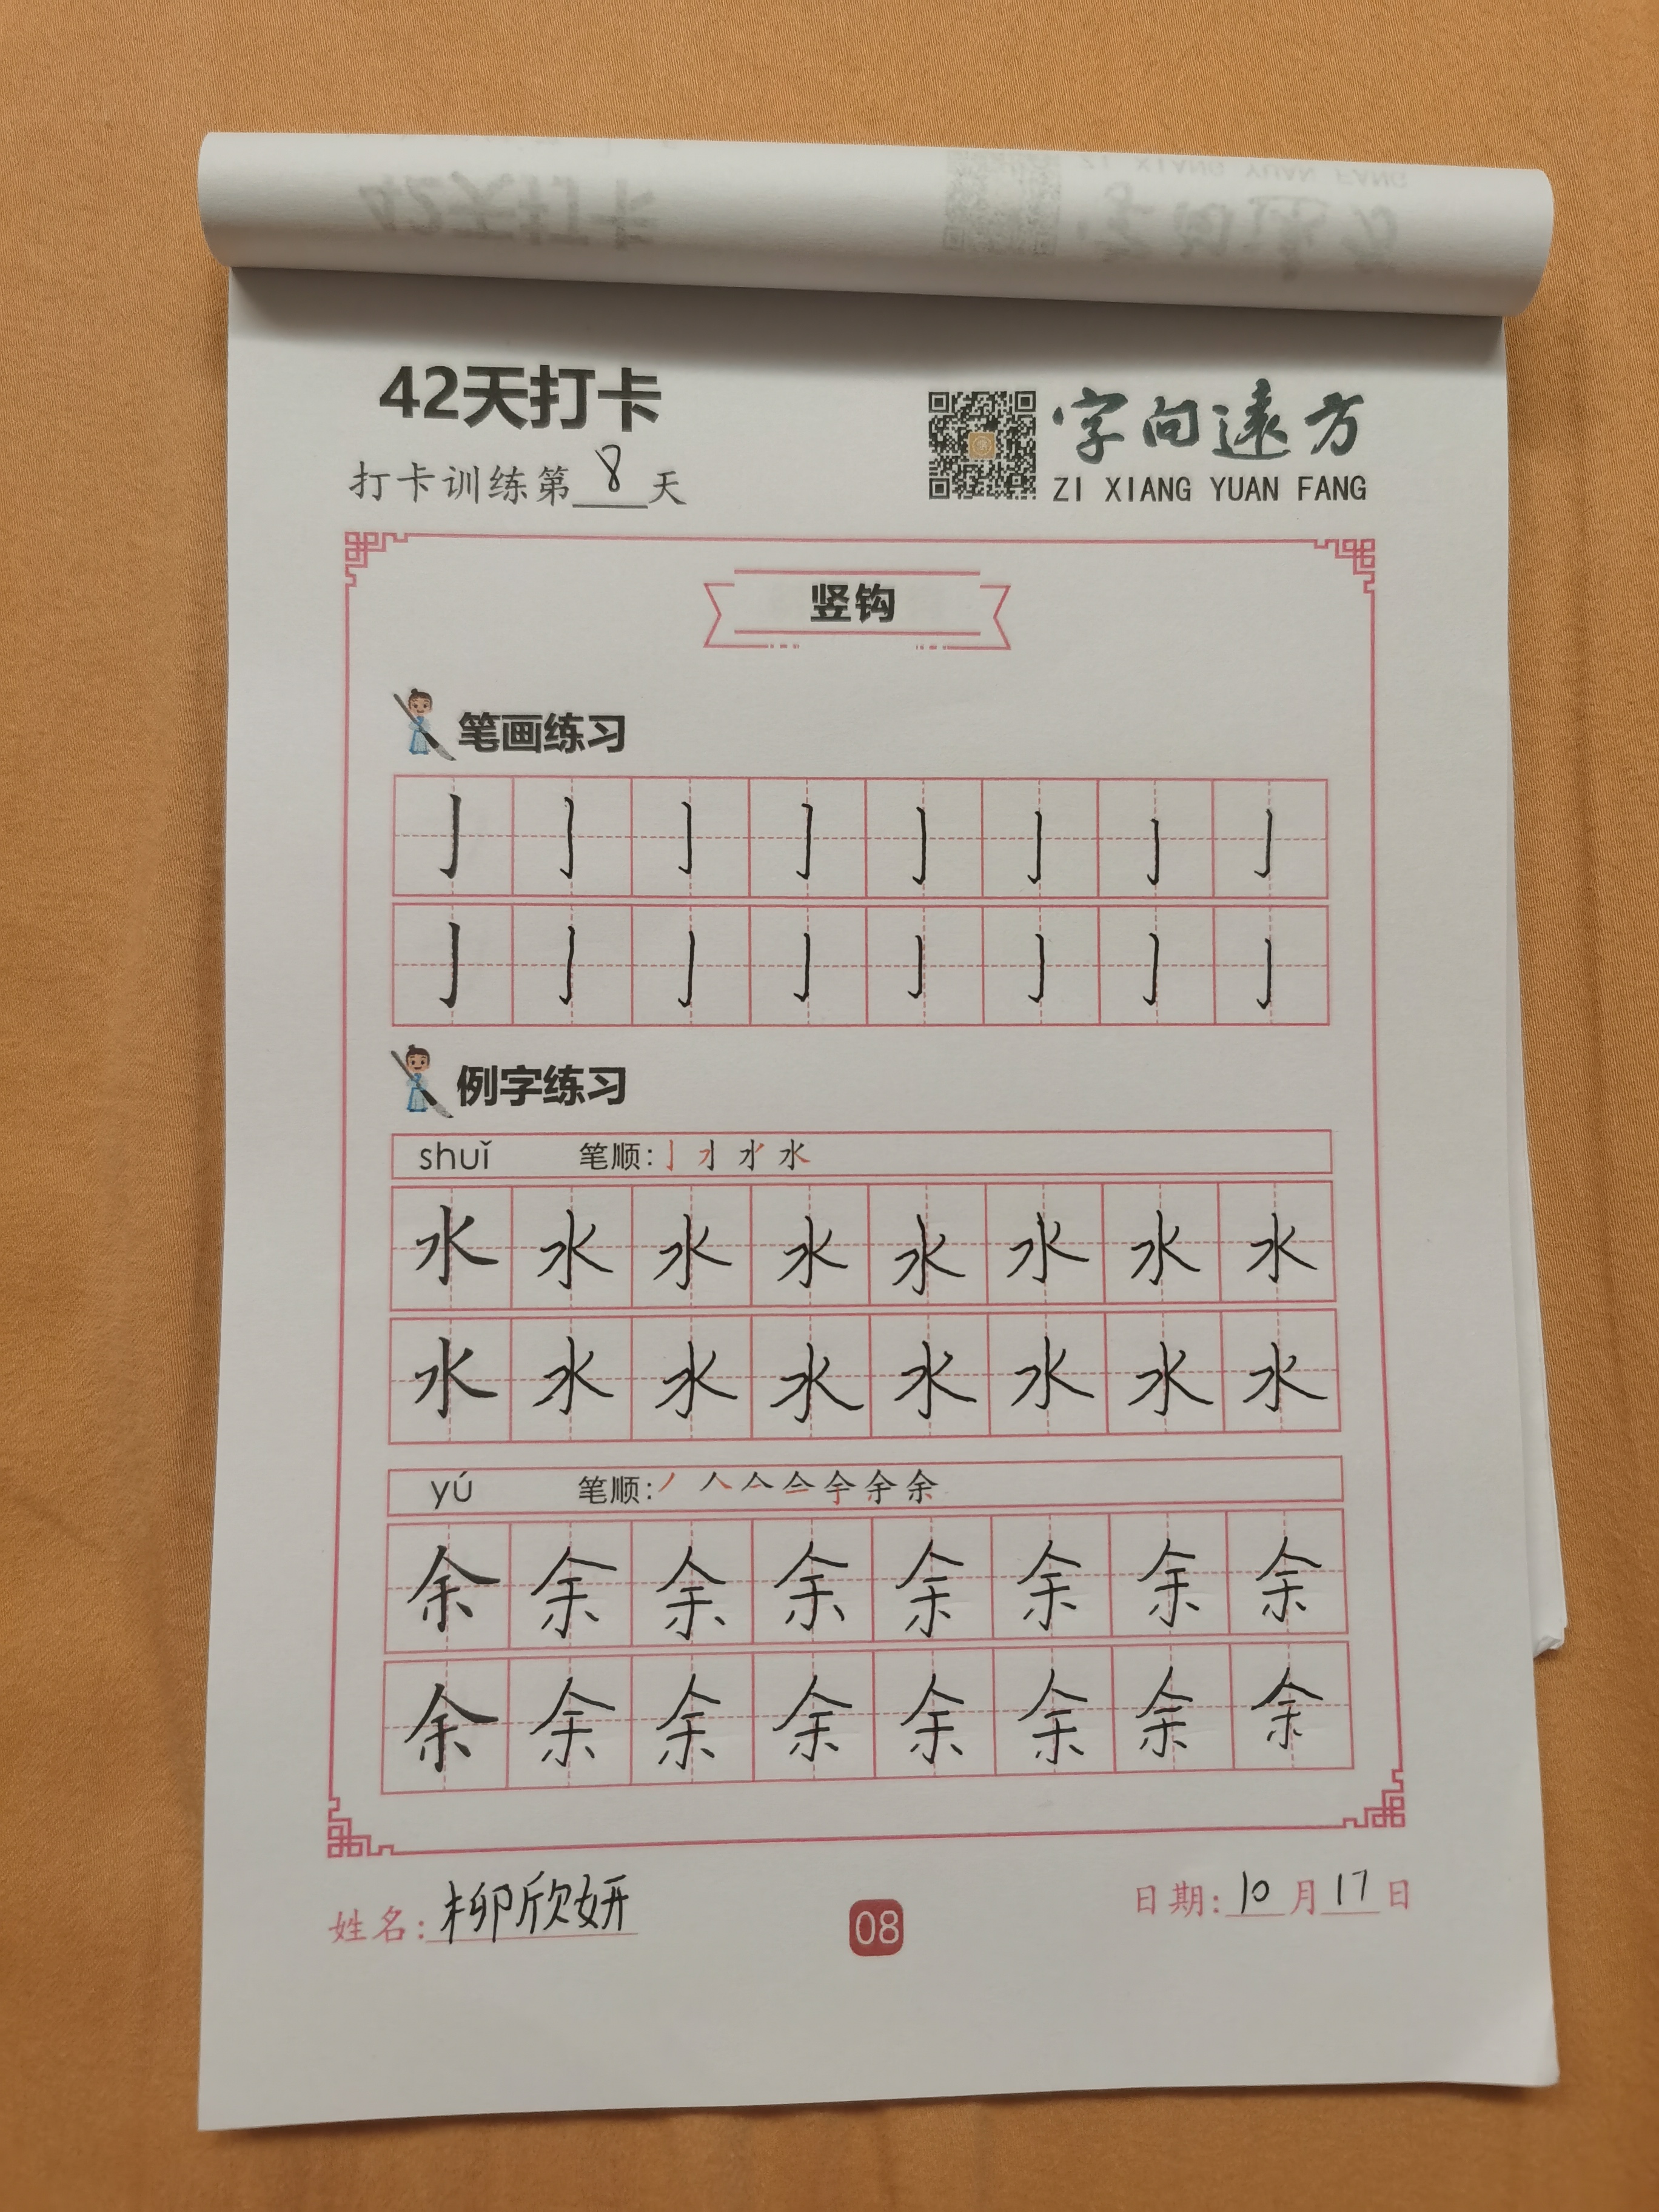 42天打卡
打卡训练第8天
字向遠方
ZI XIANG YUAN FANG
竖钩
笔画练习
亅亅亅亅亅亅亅亅
亅亅亅亅亅亅亅亅
例字练习
shuǐ 笔顺: 水
水水水水水水水水
水水水水水水水水
yú 笔顺: 余
余余余余余余余余
余余余余余余余余
姓名: 柳欣妍
08
日期: 10月17日